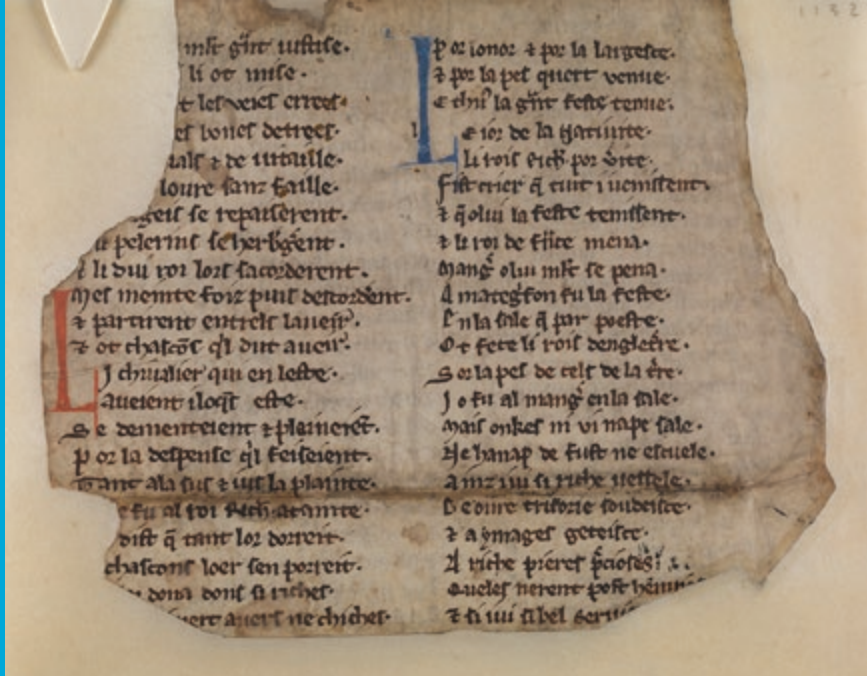 li ot mise.
t les veies errees.
es bones detrees.
ials ⁊ de uitaille.
loure sanz faille.
geis se repaiserent.
pelerins se herbgerent.
⁊ li dui roi lors sacorderent.
Mes meinte foiz puis descorderent.
⁊ partirent entrels laueir.
⁊ ot chascons qil dut aueir.
I chiualier qui en leste.
aueient iloqs este.
Se dementeient ⁊ pleineiet.
Por la despense qil feiseient.
Tant ala sus ⁊ ius la plainte.
e fu al roi Rich atainte.
dist q tant lor dorreit.
chascons loer sen porreit.
dona dons si riches.
auers ne chiches.
Por lonor ⁊ por la largesce.
⁊ por la pes quert venue.
la grnt feste tenue.
e ior de la natiuite.
li rois Rich por verite.
Fist crier q tuit i uenissent.
⁊ q olui la feste tenissent.
⁊ li roi de frce mena.
Mang olui mlt se pena.
A mategrfon fu la feste.
En la sale q par poeste.
Ot fete li rois dengletre.
Sor la pes de cels de la tre.
Jo fu al mang en la sale.
Mais onkes ni vi nape sale.
Ne hanap de fust ne escuele.
Ainz iui si riche uessele.
Deoure trisorie soudeisce.
⁊ a ymages geteisce.
A riche pieres pciosesi
Queles nerent post
⁊ si iui si bel serui